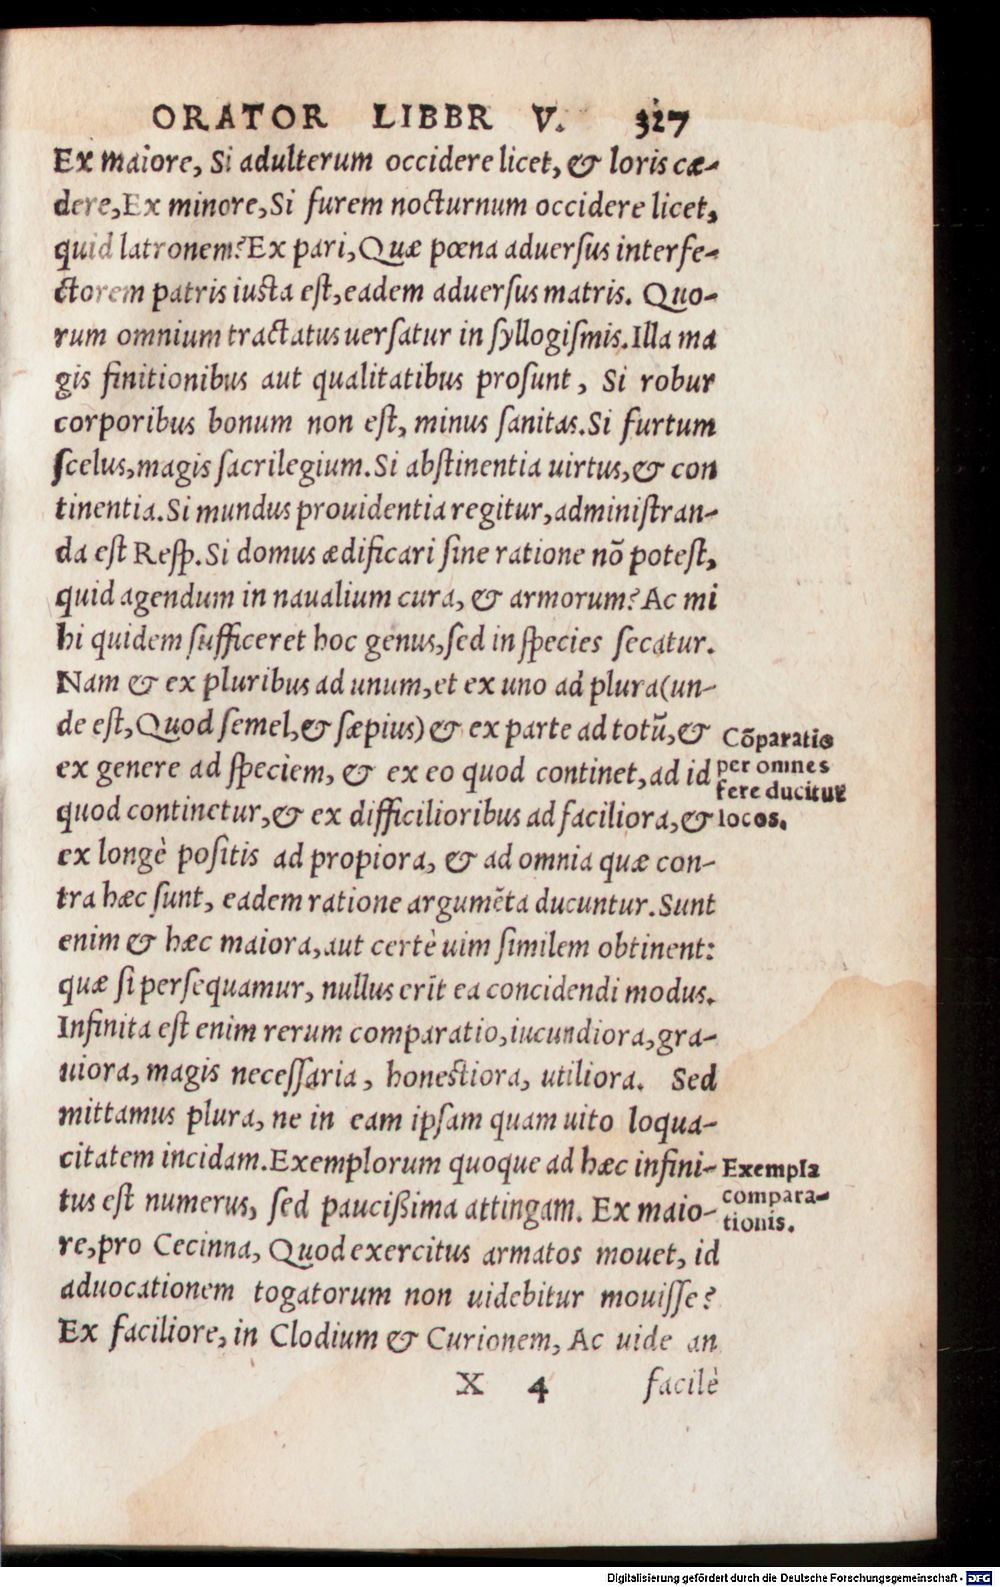 ORATOR LIBBR V. 327
Ex maiore, Si adulterum occidere licet, & loris cæ-
dere, Ex minore, Si furem nocturnum occidere licet,
quid latronem? Ex pari, Quæ pœna aduersus interfe-
ctorem patris iusta est, eadem aduersus matris. Quo-
rum omnium tractatus uersatur in syllogismis. Illa ma
gis finitionibus aut qualitatibus prosunt, Si robur
corporibus bonum non est, minus sanitas. Si furtum
scelus, magis sacrilegium. Si abstinentia uirtus, & con
tinentia. Si mundus prouidentia regitur, administran-
da est Resp. Si domus ædificari sine ratione nõ potest,
quid agendum in naualium cura, & armorum? Ac mi
hi quidem sufficeret hoc genus, sed in species secatur.
Nam & ex pluribus ad unum, et ex uno ad plura (un-
de est, Quod semel, & sæpius) & ex parte ad totũ, &
ex genere ad speciem, & ex eo quod continet, ad id
quod continetur, & ex difficilioribus ad faciliora, &
ex longè positis ad propiora, & ad omnia quæ con-
tra hæc sunt, eadem ratione argumẽta ducuntur. Sunt
enim & hæc maiora, aut certè uim similem obtinent:
quæ si persequamur, nullus erit ea concidendi modus.
Infinita est enim rerum comparatio, iucundiora, gra-
uiora, magis necessaria, honestiora, utiliora. Sed
mittamus plura, ne in eam ipsam quam uito loqua-
citatem incidam. Exemplorum quoque ad hæc infini-
tus est numerus, sed paucißima attingam. Ex maio-
re, pro Cecinna, Quod exercitus armatos mouet, id
aduocationem togatorum non uidebitur mouisse?
Ex faciliore, in Clodium & Curionem, Ac uide an
X 4 facilè
Cõparatio
per omnes
fere ducitur
locos.
Exempla
compara-
tionis.
Digitalisierung gefördert durch die Deutsche Forschungsgemeinschaft - DFG